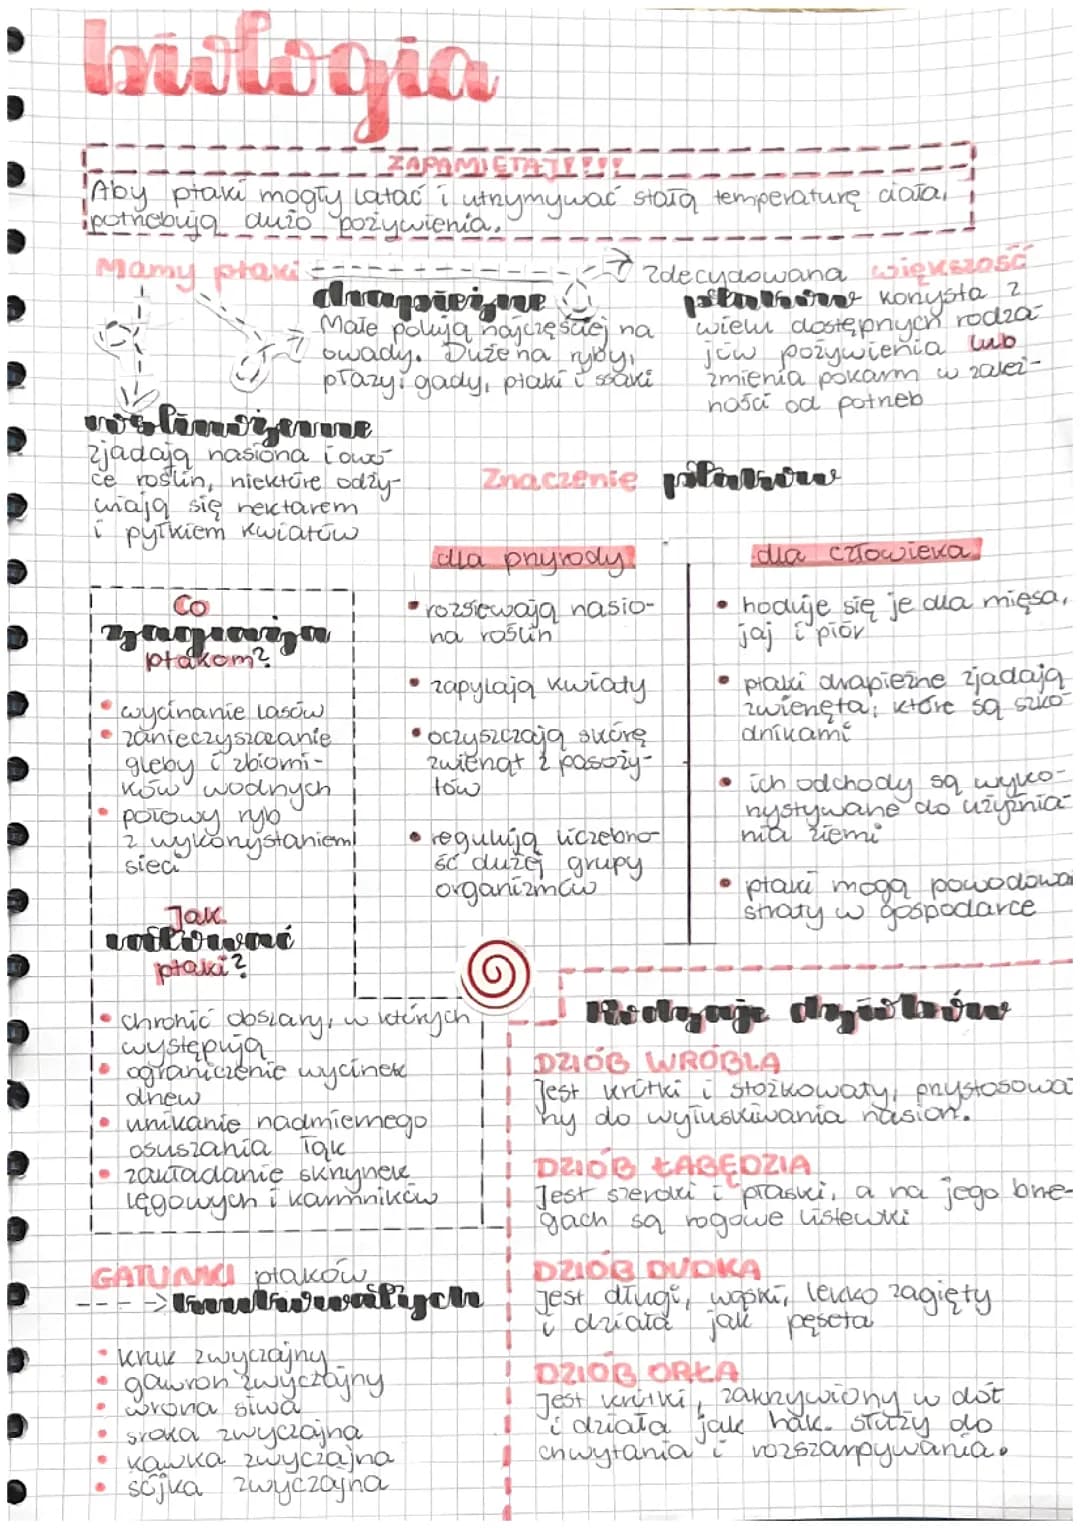 biologia
ZAPAMIĘTAJ!!!!
Aby ptaki mogły latać i utrzymywać stałą temperaturę ciała,
potrzebują dużo pożywienia.
Mamy ptaki
drapieżne
Małe polują najczęściej na
owady. Duże na ryby,
płazy, gady, ptaki i ssaki
zdecydowana większość
ptaków korzysta z
wielu dostępnych rodza-
jów pożywienia lub
zmienia pokarm w zależ-
ności od potrzeb
roślinożerne
zjadają nasiona i owo-
ce roślin, niektóre odży-
wiają się nektarem
i pyłkiem kwiatów
Znaczenie ptaków
dla przyrody
• rozsiewają nasio-
na roślin
• zapylają kwiaty
• oczyszczają skórę
zwierząt z pasoży-
tów
• regulują liczebno-
ść dużej grupy
organizmów
dla człowieka
• hoduje się je dla mięsa,
jaj i piór
• ptaki drapieżne zjadają
zwierzęta, które są szko-
dnikami
• ich odchody są wyko-
rzystywane do użyźnia-
nia ziemi
• ptaki mogą powodować
straty w gospodarce
Co
zagraża
ptakom?
• wycinanie lasów
• zanieczyszczanie
gleby i zbiorni-
ków wodnych
• połowy ryb
z wykorzystaniem
sieci
Jak
ratować
ptaki?
• chronić obszary, w których
występują
• ograniczenie wycinek
drzew
• unikanie nadmiernego
osuszania łąk
• zakładanie skrzynek
lęgowych i karmników
GATUNKI ptaków
krukowatych
• kruk zwyczajny
• gawron zwyczajny
• wrona siwa
• sroka zwyczajna
• kawka zwyczajna
• sójka zwyczajna
Rodzaje dziobów
DZIÓB WRÓBLA
Jest krótki i stożkowaty, przystosowa
ny do wyłuskiwania nasion.
DZIÓB ŁABĘDZIA
Jest szeroki i płaski, a na jego brze-
gach są rogowe listewki
DZIÓB DUDKA
jest długi, wąski, lekko zagięty
i działa jak pęseta
DZIÓB ORŁA
Jest krótki, zakrzywiony w dół
i działa jak hak. służy do
chwytania i rozszarpywania.